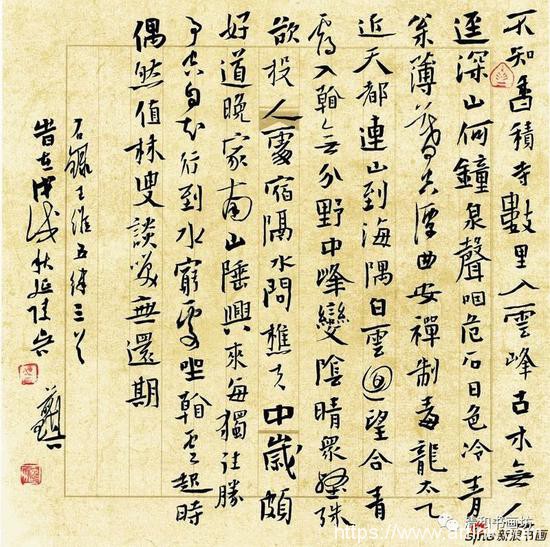 不知香積寺數里入雲峰古木無人
逕深山何鐘泉聲咽危石日色冷青
松薄暮空潭曲安禪制毒龍太乙
近天都連山到海隅白雲迴望合青
靄入看無分野中峰變陰晴衆壑殊
欲投人處宿隔水問樵夫中歲頗
好道晚家南山陲興來每獨往勝
事空自知行到水窮處坐看雲起時
偶然值林叟談笑無還期
右録王維五律三首
旹在戊戌秋延陵
清和书画坊
sina新浪书画